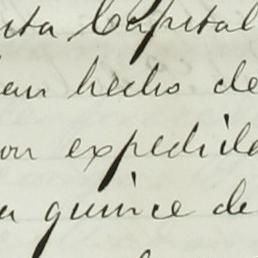 sta Capital
an hecho de
on expedida
a quince de